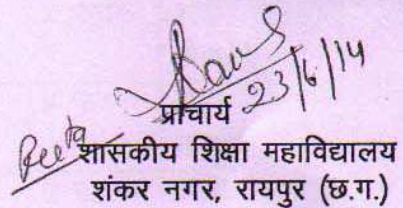 23/6/14
प्राचार्य
शासकीय शिक्षा महाविद्यालय
शंकर नगर, रायपुर (छ.ग.)